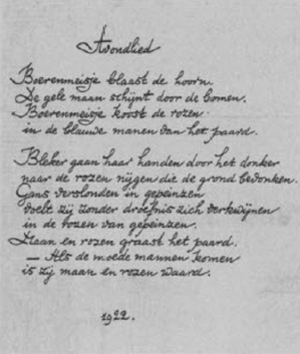 Avondlied
Boerenmeisje blaast de hoorn.
De gele maan schijnt door de bomen.
Boerenmeisje koost de rozen
in de blauwe manen van het paard.
Bleker gaan haar handen door het donker
naar de rozen nijgen die de grond bedonken.
Gans verslonden in gepeinzen
voelt zij zonder droefnis zich verkwijnen
in de rozen van gepeinzen.
Maan en rozen graast het paard.
— Als de moede mannen komen
is zij maan en rozen waard.
1922.